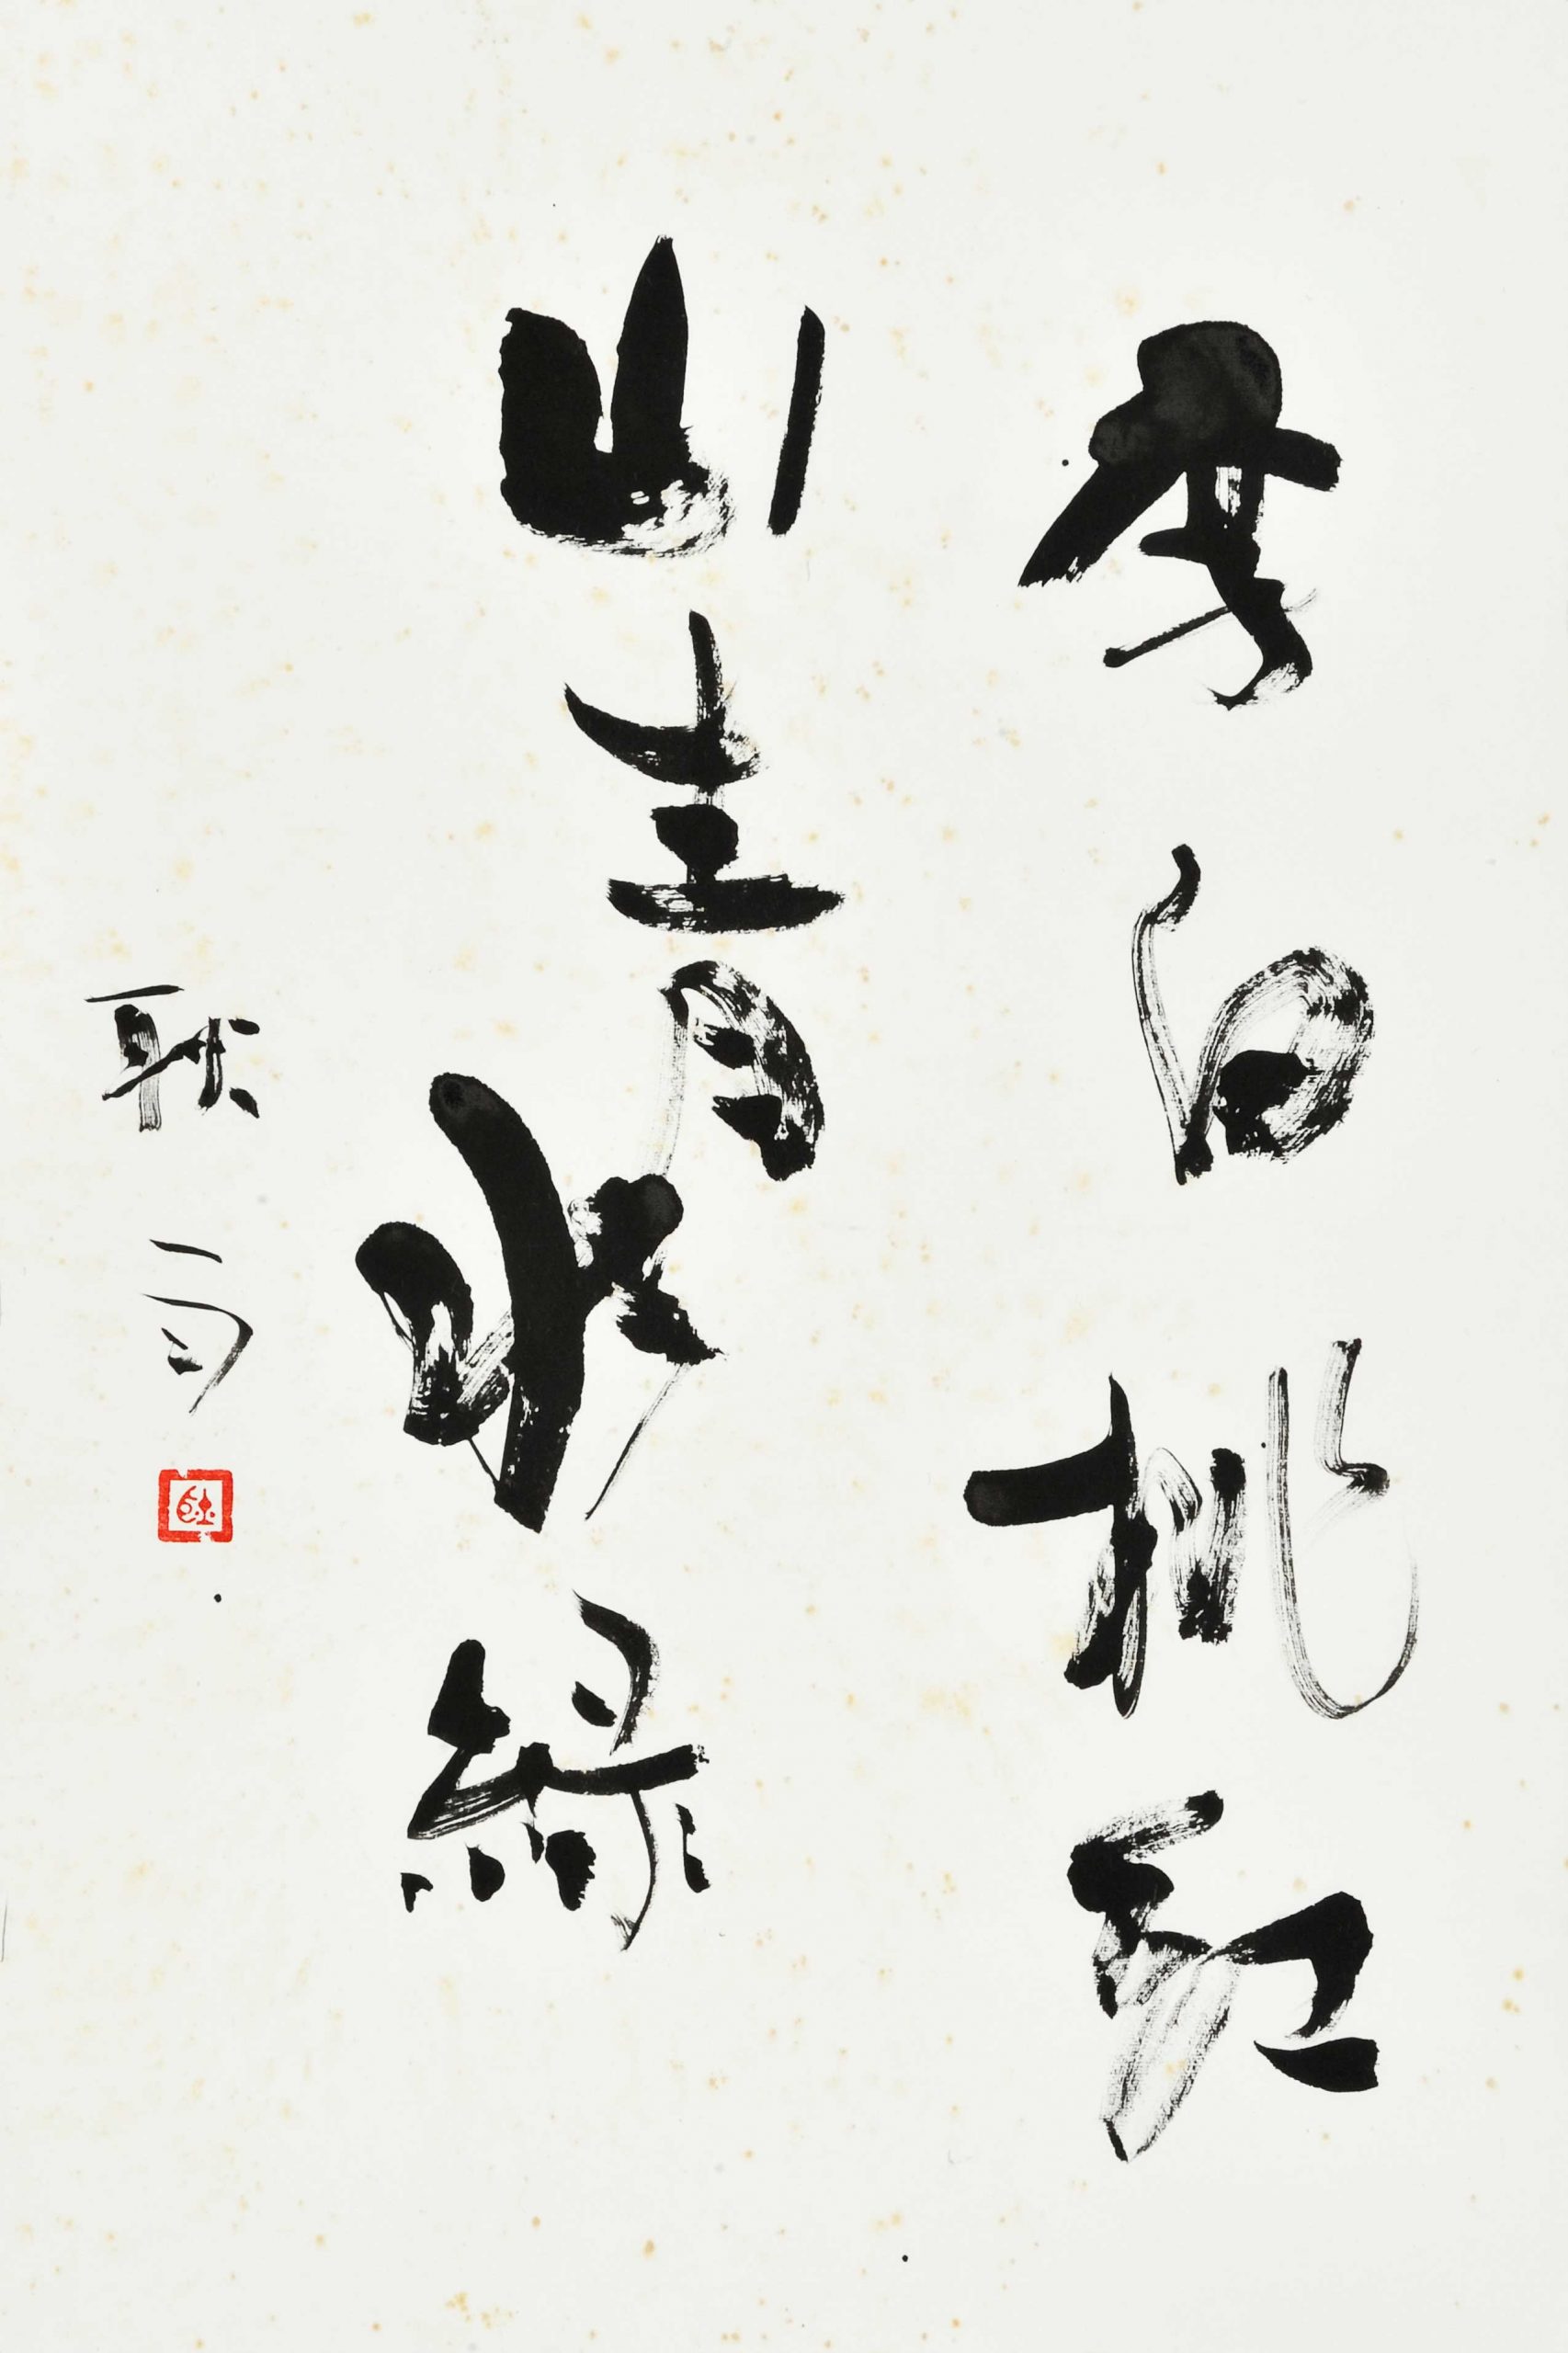 李白桃紅
山青水緑
耿